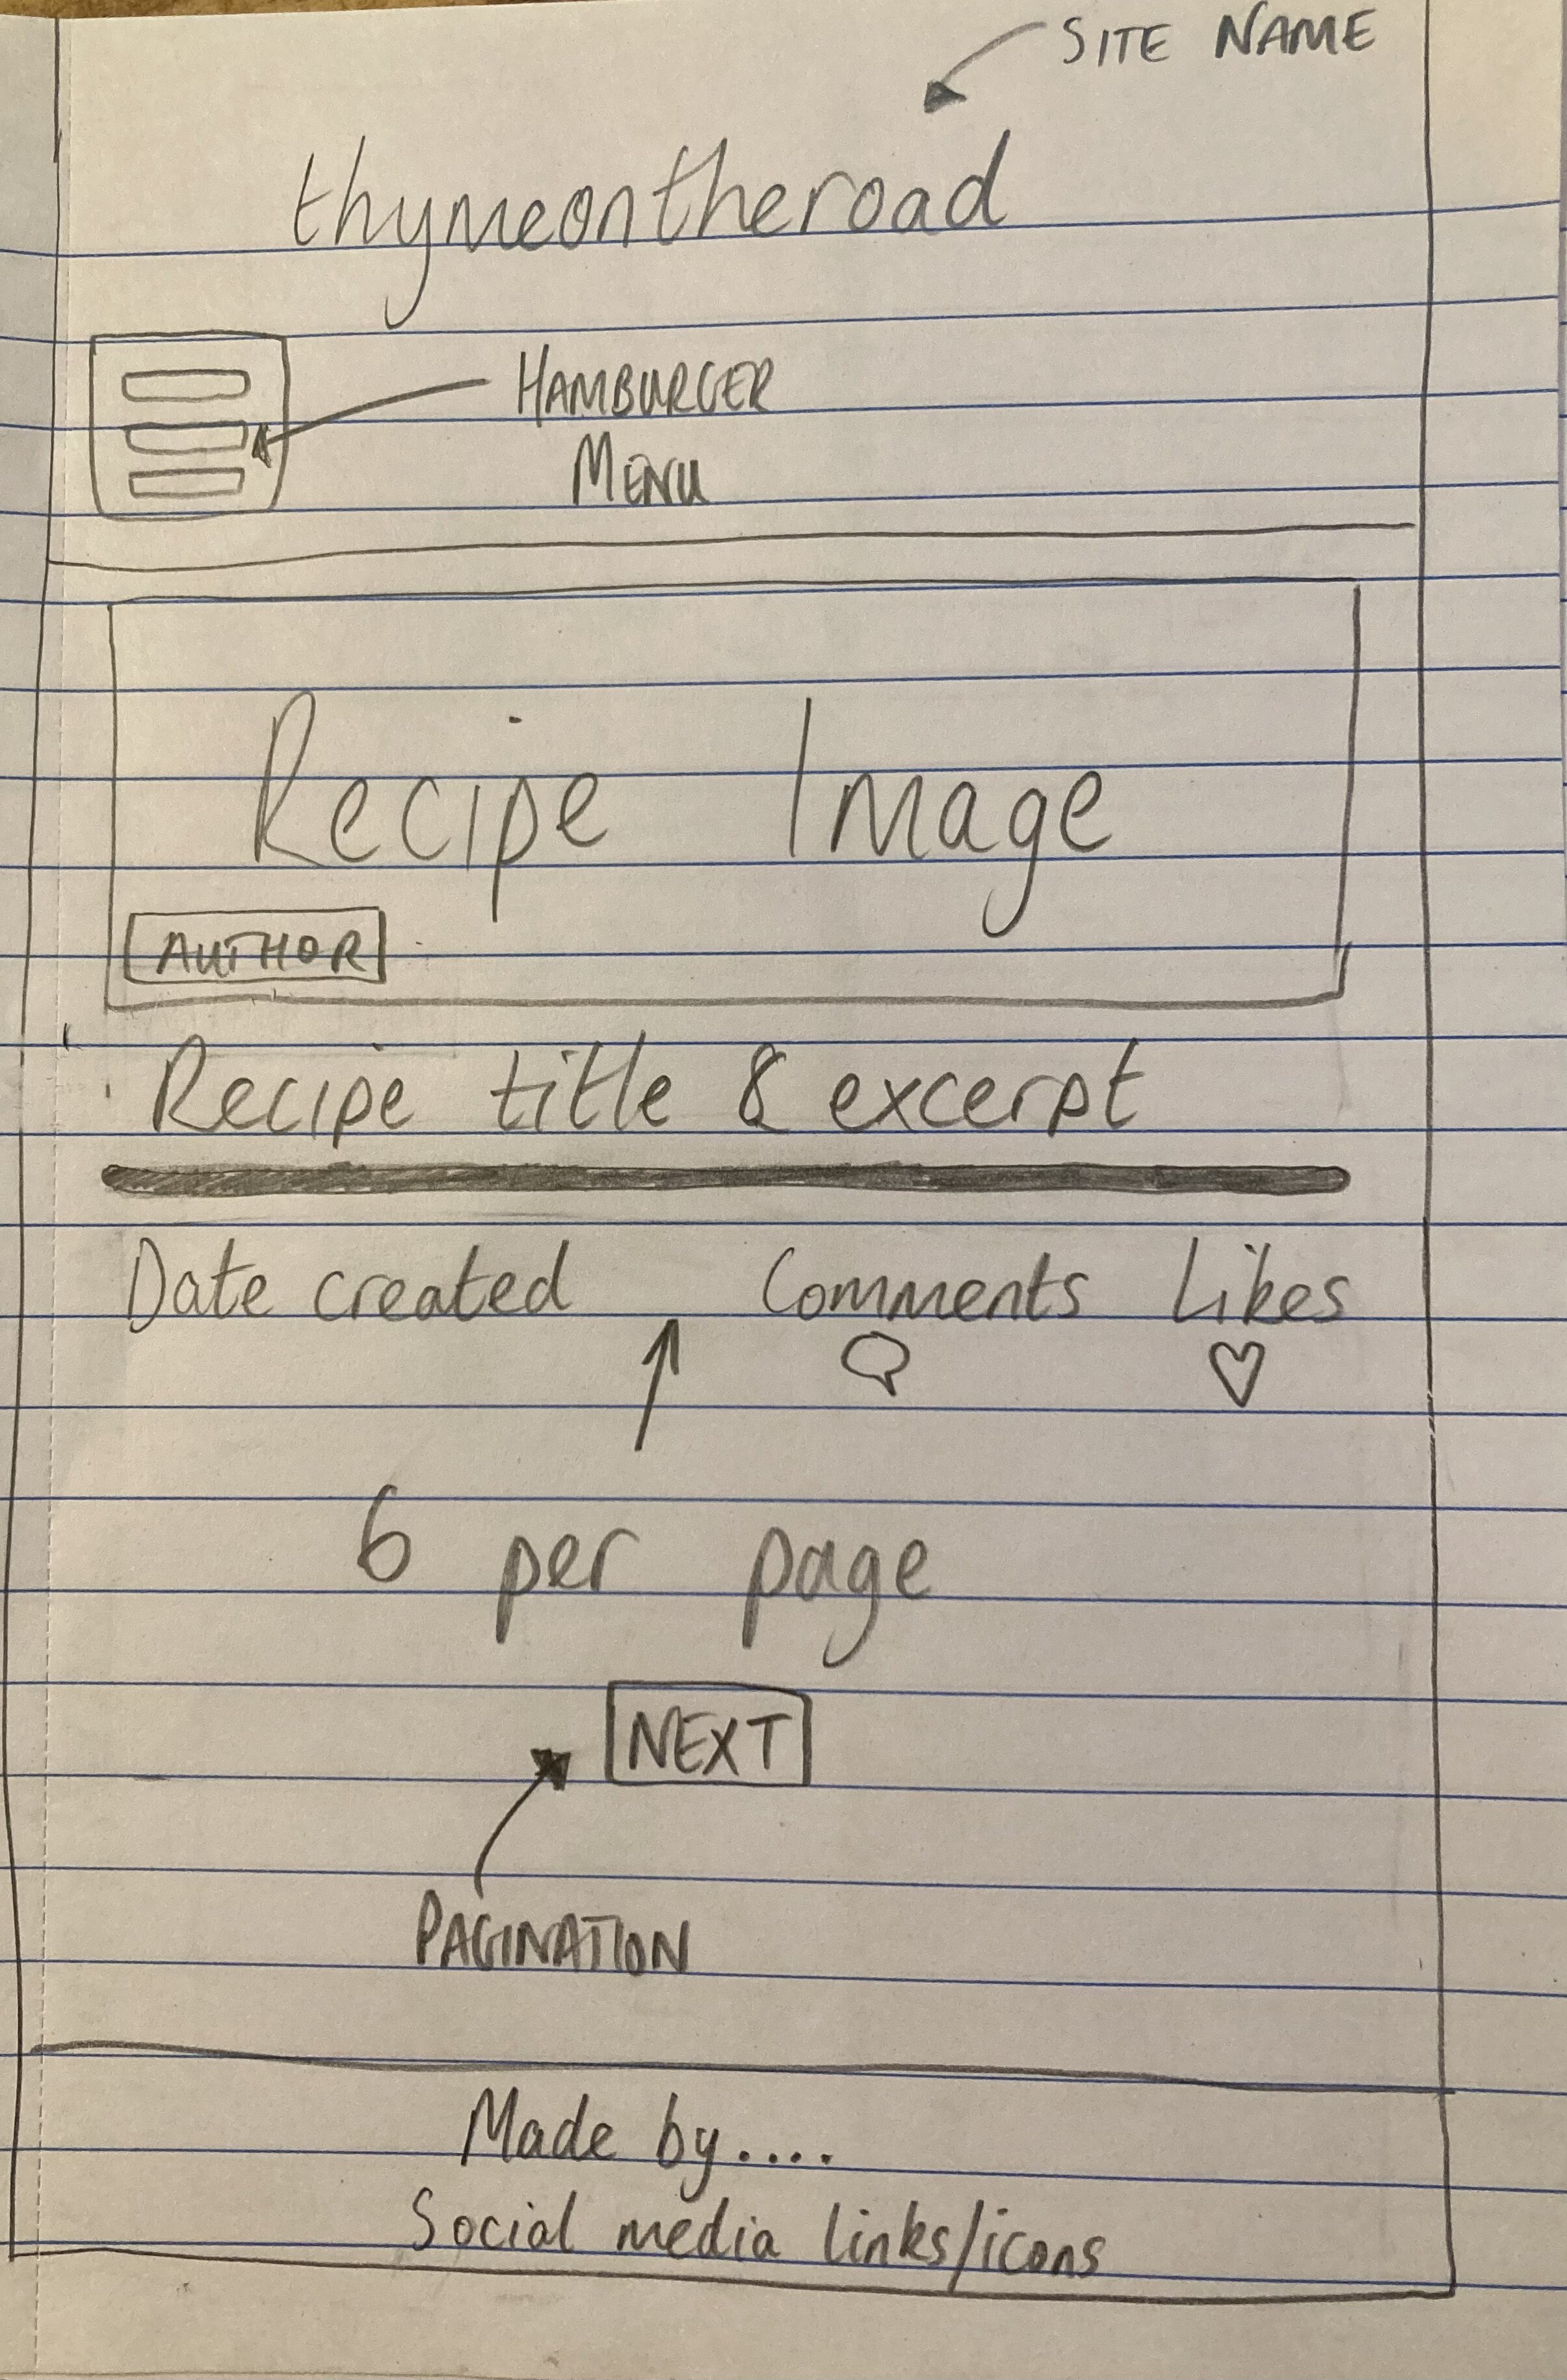 SITE NAME
thymeontheroad
HAMBURGER
MENU
Recipe Image
AUTHOR
Recipe title & excerpt
Date created Comments Likes
6 per page
NEXT
PAGINATION
Made by....
Social media links/icons